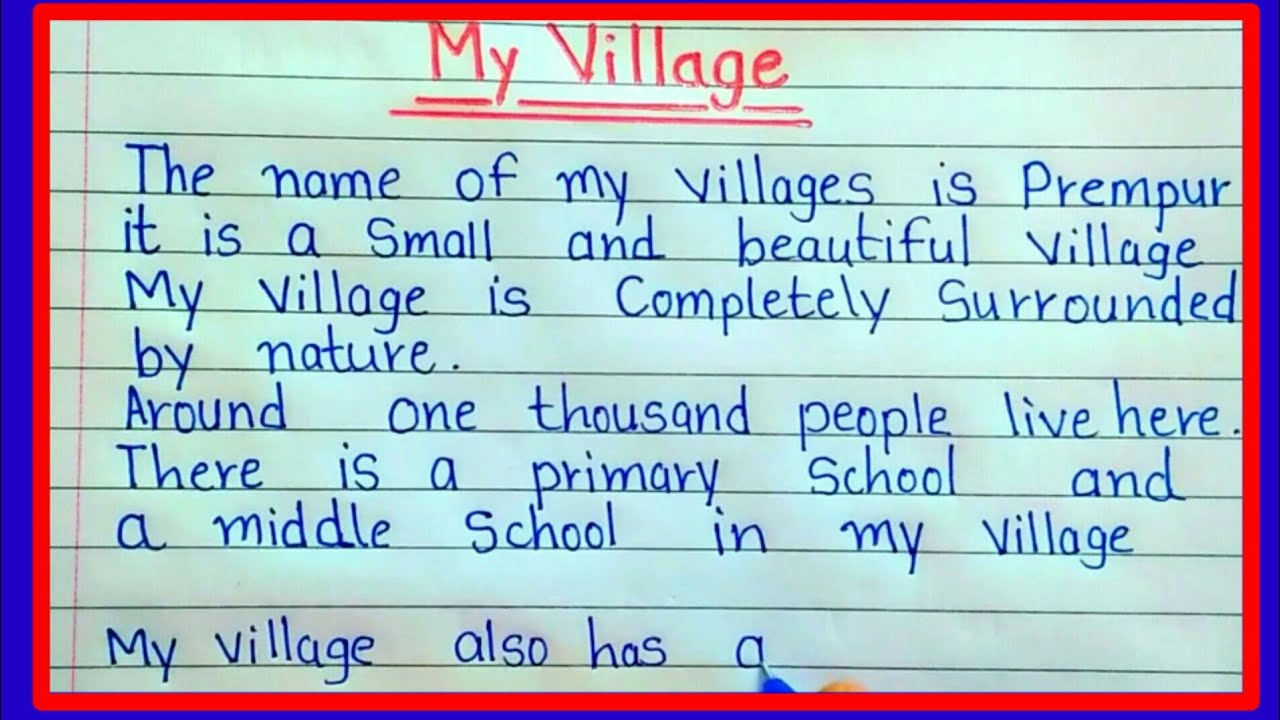 My Village
The name of my villages is Prempur
it is a small and beautiful village
My village is Completely Surrounded
by nature.
Around one thousand people live here.
There is a primary School and
a middle School in my village
My village also has a